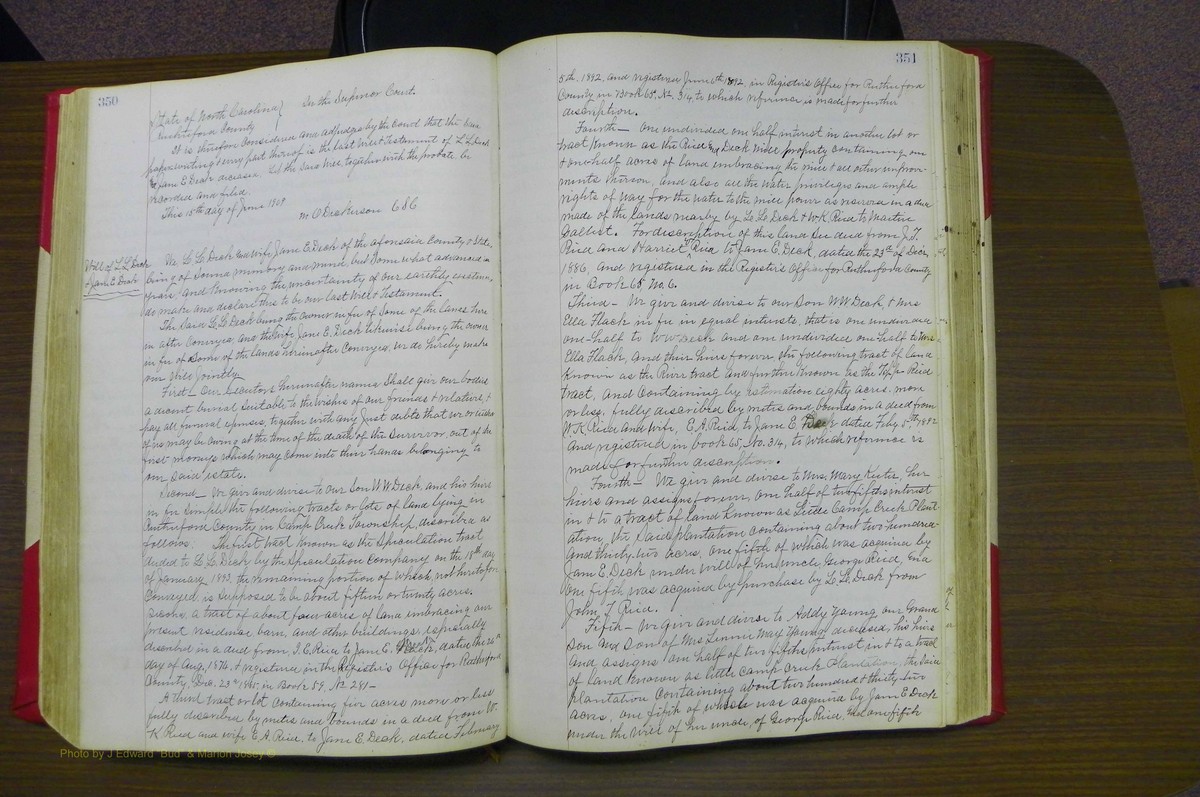 350
State of North Carolina } In the Superior Court.
Rutherford County
It is therefore considered and adjudged by the Court that the
paper writing & every part thereof is the last Will & Testament of L. G. Deck
& Jane E. Deck deceased. Let the said Will, together with the probate be
recorded and filed.
This 15th day of June 1909
M. O. Dickerson C S C
Will of L. G. Deck
& Jane E. Deck
We L. G. Deck and wife Jane E. Deck of the aforesaid County & State
being of sound memory and mind but some what advanced in
years, and knowing the uncertainty of our earthly existence,
do make and declare this to be our last Will & Testament.
The said L. G. Deck being the owner in fee of some of the lands here
in after conveyed, and the wife Jane E. Deck likewise being the owner
in fee of some of the lands hereinafter conveyed, we do hereby make
our Will jointly.
First - Our Executors hereinafter named shall give our bodies
a decent burial suitable to the wishes of our friends & relatives, &
pay all funeral expenses, together with any just debts that we or either
of us may be owing at the time of the death of the survivor, out of the
first moneys which may come into their hands belonging to
our said estate.
Second - We give and devise to our Son W W Deck and his heirs
in fee simple the following tracts or lots of land lying in
Rutherford County in Camp Creek Township, described as
follows: The first tract known as the Speculation tract
deeded to L. G. Deck by the Speculation Company on the 18th day
of January 1893, the remaining portion of which, not heretofore
conveyed is supposed to be about fifteen or twenty acres.
Second, a tract of about four acres of land embracing our
present residence barn, and other buildings, especially
described in a deed from J. E. Reid to Jane E. Deck, dated the 24th
day of Aug. 1876, & registered in the Register's Office for Rutherford
County, Dec. 23rd 1885, in Book 59, No 291 -
A third tract or lot containing five acres more or less
fully described by metes and bounds in a deed from W.
K Reid and wife E. A. Reid, to Jane E. Deck, dated February
351
5th, 1892, and registered June 6th 1892, in Register's Office for Rutherford
County in Book 65, No. 314, to which reference is made for further
description.
Fourth - One undivided one half interest in another lot or
tract known as the Reid & Deck Mill property containing one
& one-half acres of land embracing the mill & all other improve-
ments thereon, and also all the water privileges and ample
rights of way for the water to the mill pond as reserved in a deed
made of the lands nearby by L. G. Deck & W. K. Reid to Martin
For description of this land see deed from J. T.
Reid and Harriet Reid to Jane E. Deck, dated the 23rd of Dec.
1886, and registered in the Register's Office for Rutherford County
in Book 65 No. 6.
Third - We give and devise to our Son W W Deck & Mrs
Ella Flack in fee in equal interests, that is one undivided
one-half to W W Deck and one undivided one half to Mrs.
Ella Flack, and their heirs forever the following tract of land
known as the River tract and further known as the Reid
tract, and containing by estimation eighty acres. more
or less, fully described by metes and bounds in a deed from
W. K Reid and wife, E. A. Reid, to Jane E Deck dated Feby. 5th 1892
and registered in book 65, No. 314, to which reference is
made for further description.
Fourth - We give and devise to Mrs. Mary Keeter, her
heirs and assigns forever, one half of two fifths interest
in & to a tract of land known as Little Camp Creek Plant-
ation, the said plantation containing about two hundred
and thirty-two acres, one fifth of which was acquired by
Jane E. Deck under will of her uncle, George Reid, and
one fifth was acquired by purchase by L. G. Deck from
John T. Reid.
Fifth - We give and devise to Addy Young our Grand
Son and Son of Mrs May Young deceased, his heirs
and assigns, one half of two fifths interest in & to a tract
of land known as Little Camp Creek Plantation, the said
plantation containing about two hundred & thirty two
acres, one fifth of which was acquired by Jane E. Deck
under the will of her uncle, of George Reid, and one fifth
Photo by J Edward "Bud" & Marion Josey ©